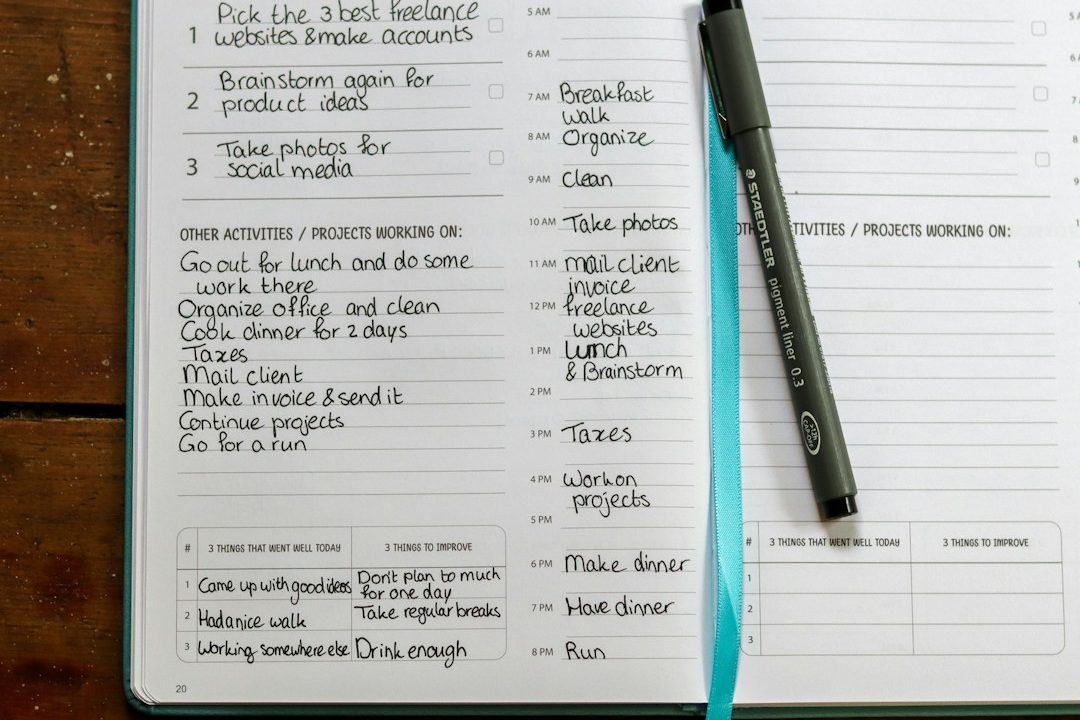 1 Pick the 3 best freelance
websites & make accounts
2 Brainstorm again for
product ideas
3 Take photos for
social media
OTHER ACTIVITIES / PROJECTS WORKING ON:
Go out for lunch and do some
work there
Organize office and clean
Cook dinner for 2 days
Taxes
Mail client
Make invoice & send it
Continue projects
Go for a run
# 3 THINGS THAT WENT WELL TODAY 3 THINGS TO IMPROVE
1 Came up with good ideas Don't plan to much
for one day
2 Had a nice walk Take regular breaks
3 Working somewhere else Drink enough
20
5 AM
6 AM
7 AM Breakfast
walk
8 AM Organize
9 AM Clean
10 AM Take photos
11 AM Mail client
invoice
12 PM freelance
websites
1 PM Lunch
& Brainstorm
2 PM
3 PM Taxes
4 PM Work on
projects
5 PM
6 PM Make dinner
7 PM Have dinner
8 PM Run
STAEDTLER pigment liner 0.3
OTH TIVITIES / PROJECTS WORKING ON:
# 3 THINGS THAT WENT WELL TODAY 3 THINGS TO IMPROVE
1
2
3